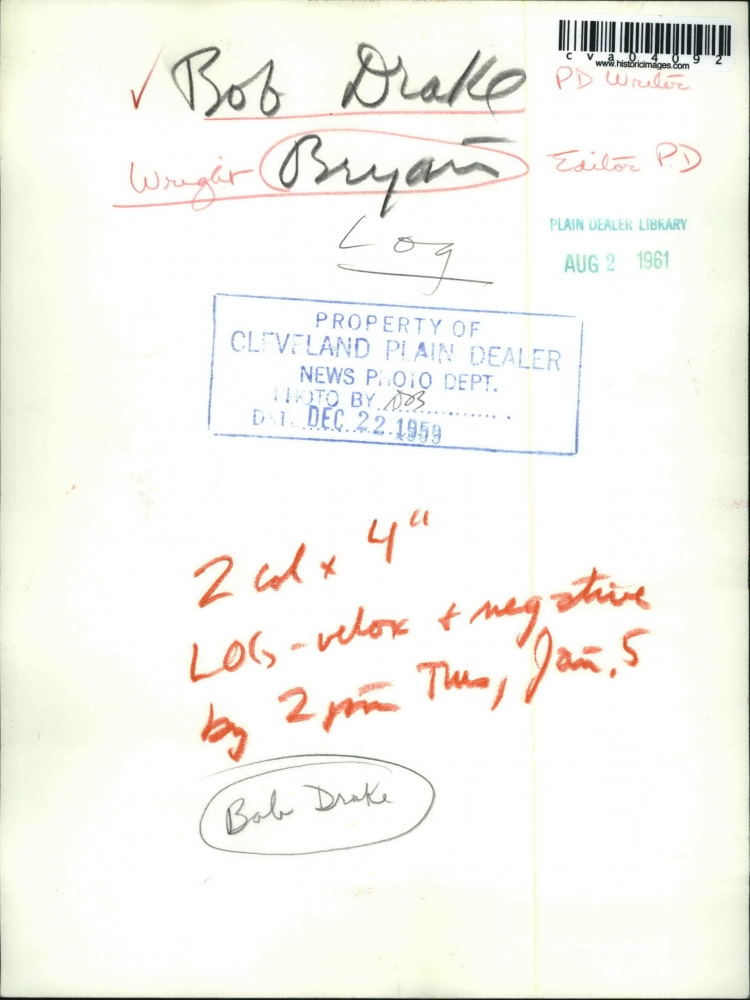 cva04092
www.historicimages.com
✓ Bob Drake PD Writer
Wright Bryan Editor P.D
Log
PLAIN DEALER LIBRARY
AUG 2 1961
PROPERTY OF
CLEVELAND PLAIN DEALER
NEWS PHOTO DEPT.
PHOTO BY
DATE DEC 22 1959
2 col x 4"
LOG - velox + negative
by 2 pm Thus, Jan. 5
Bob Drake